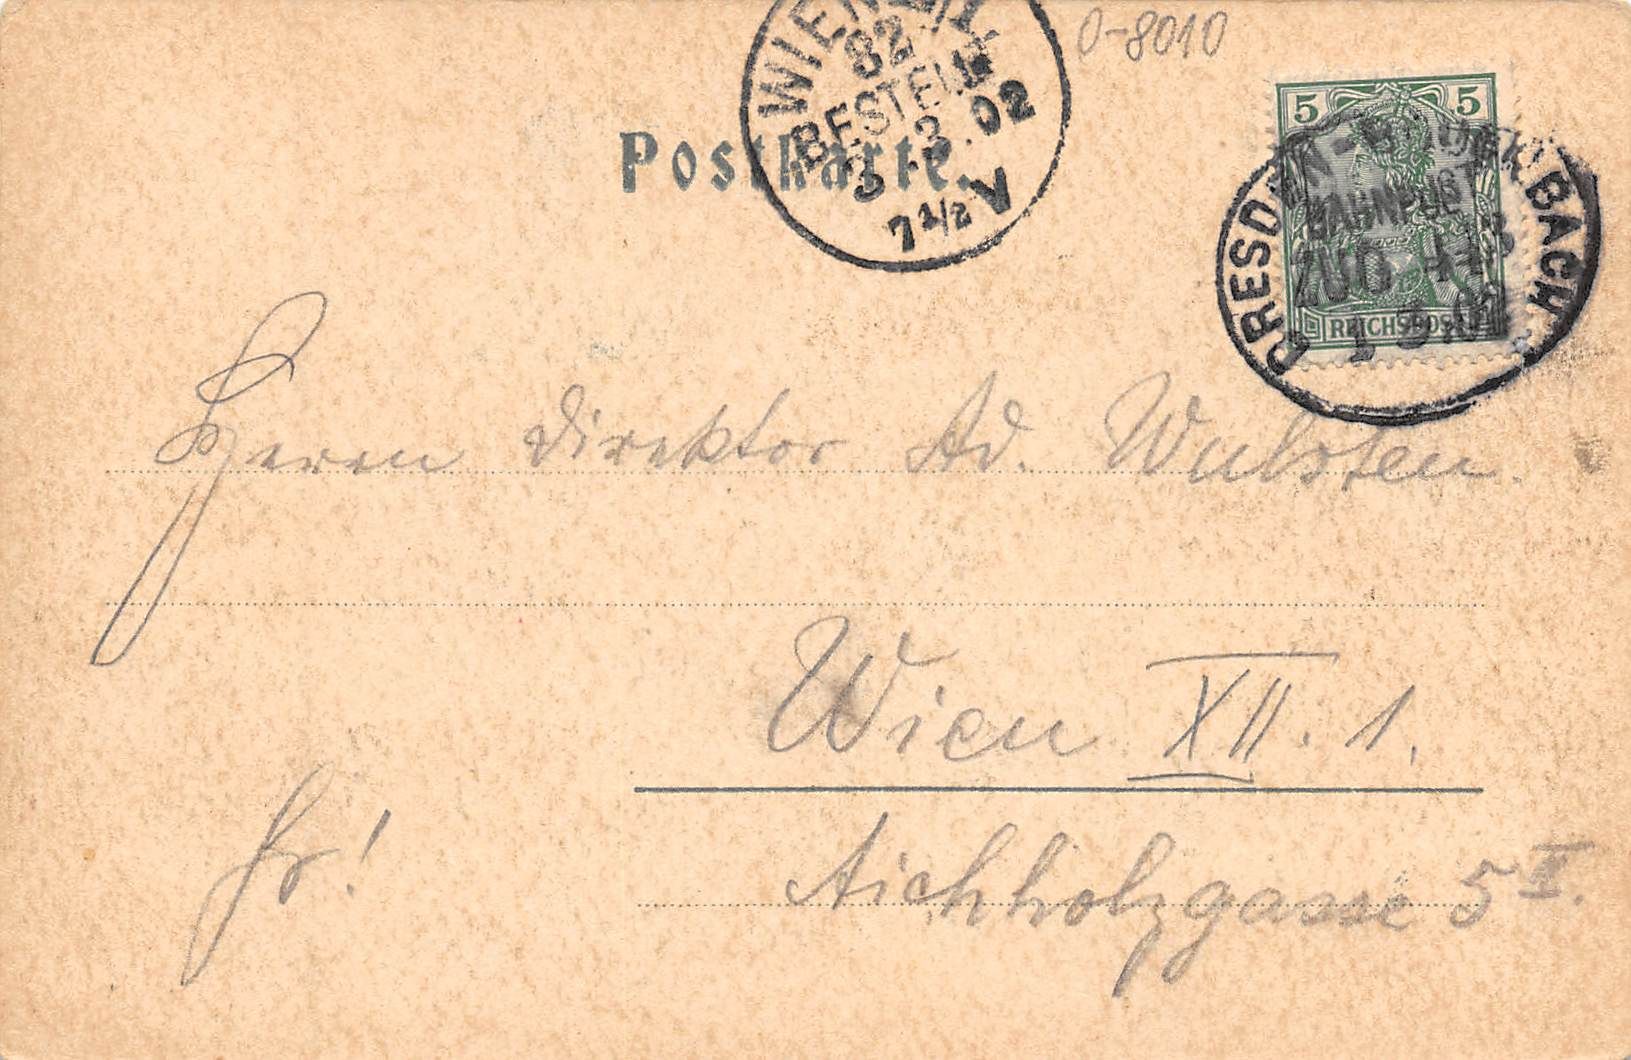 0-8010
WIEN 12/1
82
BESTELLT
3. 3. 02
7 1/2 V
Postkarte.
5 5
REICHSPOST
DRESDEN - BODENBACH
BAHNPOST
ZUG
Herrn Direktor Ad. Wulsten.
Wien XII. 1.
Fr!
Aichholzgasse 5 II.